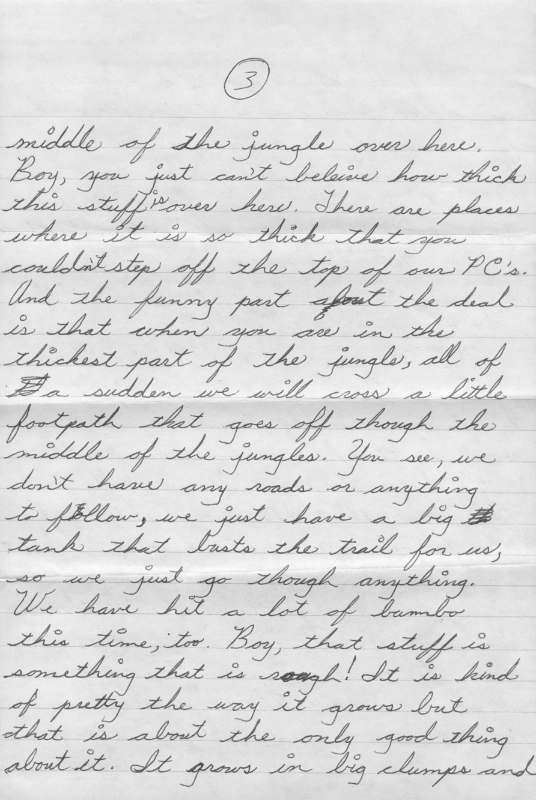 3
middle of the jungle over here.
Boy, you just can't beleive how thick
this stuff is over here. There are places
where it is so thick that you
couldn't step off the top of our PC's.
And the funny part about the deal
is that when you are in the
thickest part of the jungle, all of
a sudden we will cross a little
footpath that goes off though the
middle of the jungles. You see, we
don't have any roads or anything
to follow, we just have a big
tank that busts the trail for us,
so we just go though anything.
We have hit a lot of bambo
this time, too. Boy, that stuff is
something that is rough! It is kind
of pretty the way it grows but
that is about the only good thing
about it. It grows in big clumps and